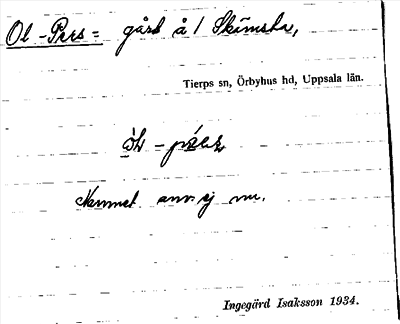 Ol-Pers= gård å/ Skämsta,
Tierps sn, Örbyhus hd, Uppsala län.
Namnet anv. ej nu.
Ingegärd Isaksson 1934.